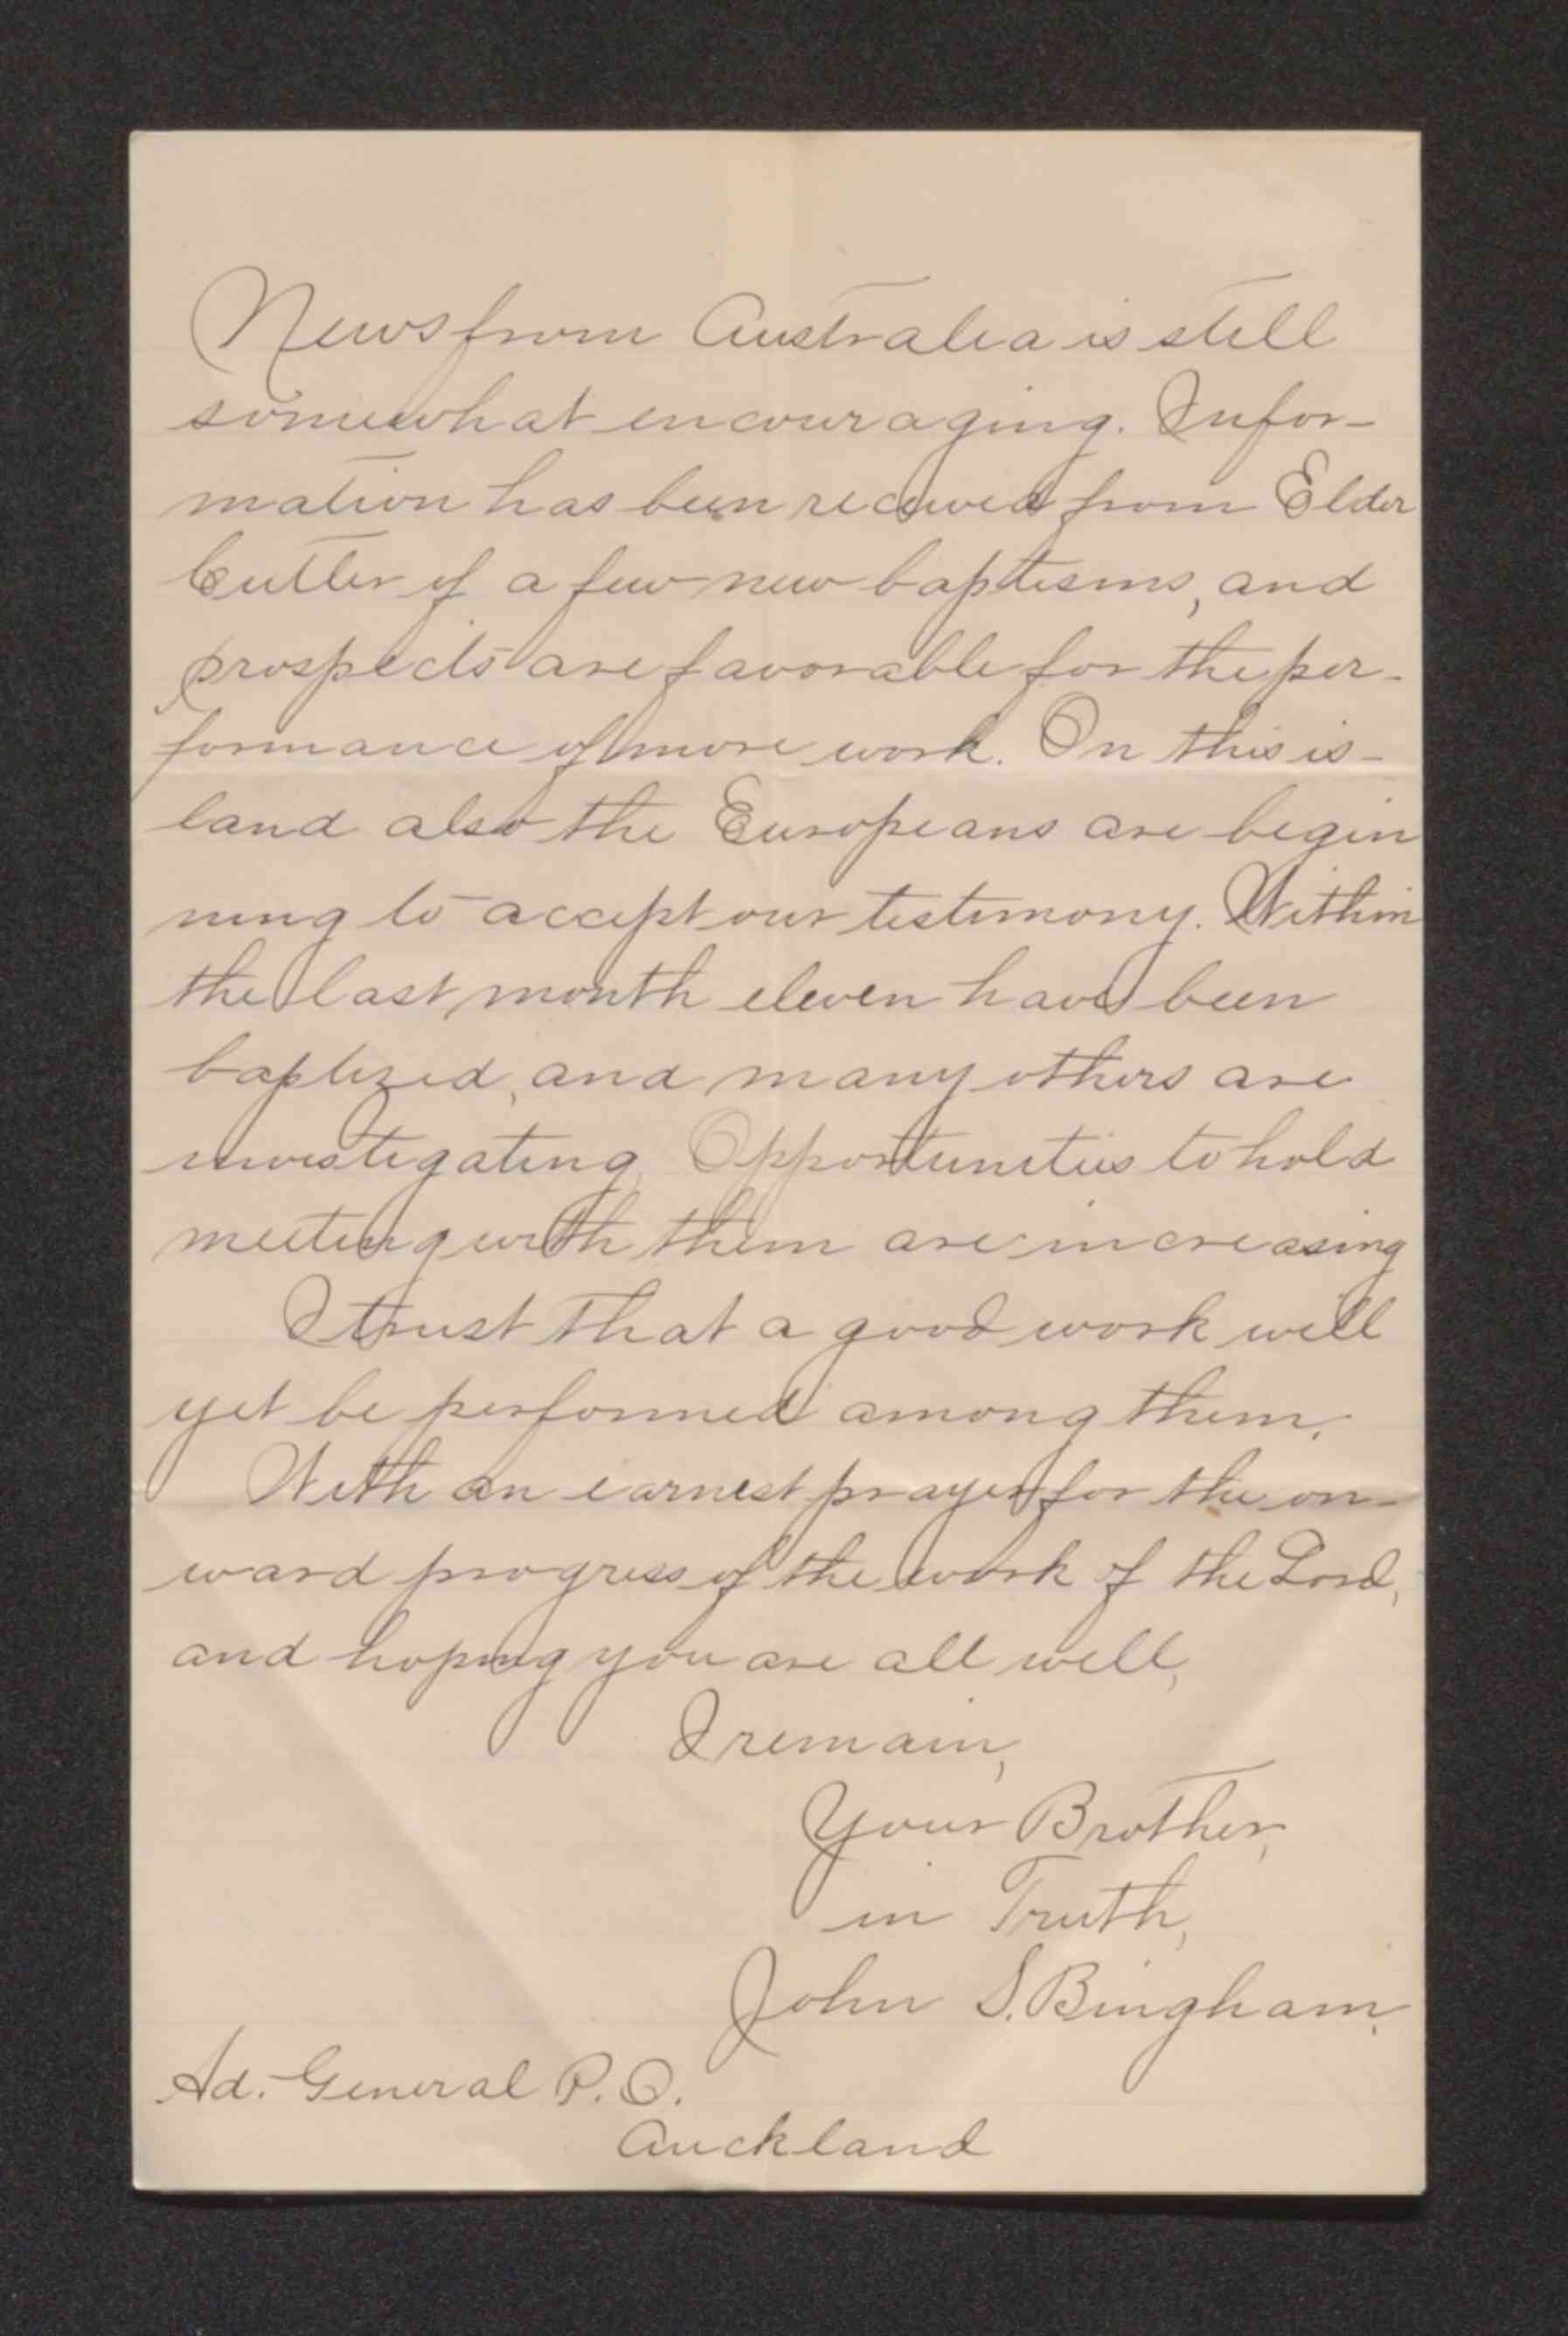 News from Australia is still
somewhat encouraging. Infor-
mation has been received from Elder
Cutler of a few new baptisms, and
prospects are favorable for the per-
formance of more work. On this is-
land also the Europeans are begin
ning to accept our testimony. Within
the last month eleven have been
baptized, and many others are
investigating. Opportunities to hold
meeting with them are increasing
I trust that a good work will
yet be performed among them.
With an earnest prayer for the on-
ward progress of the work of the Lord,
and hoping you are all well,
I remain,
Your Brother,
in Truth,
John S. Bingham.
Ad. General P.O.
Auckland